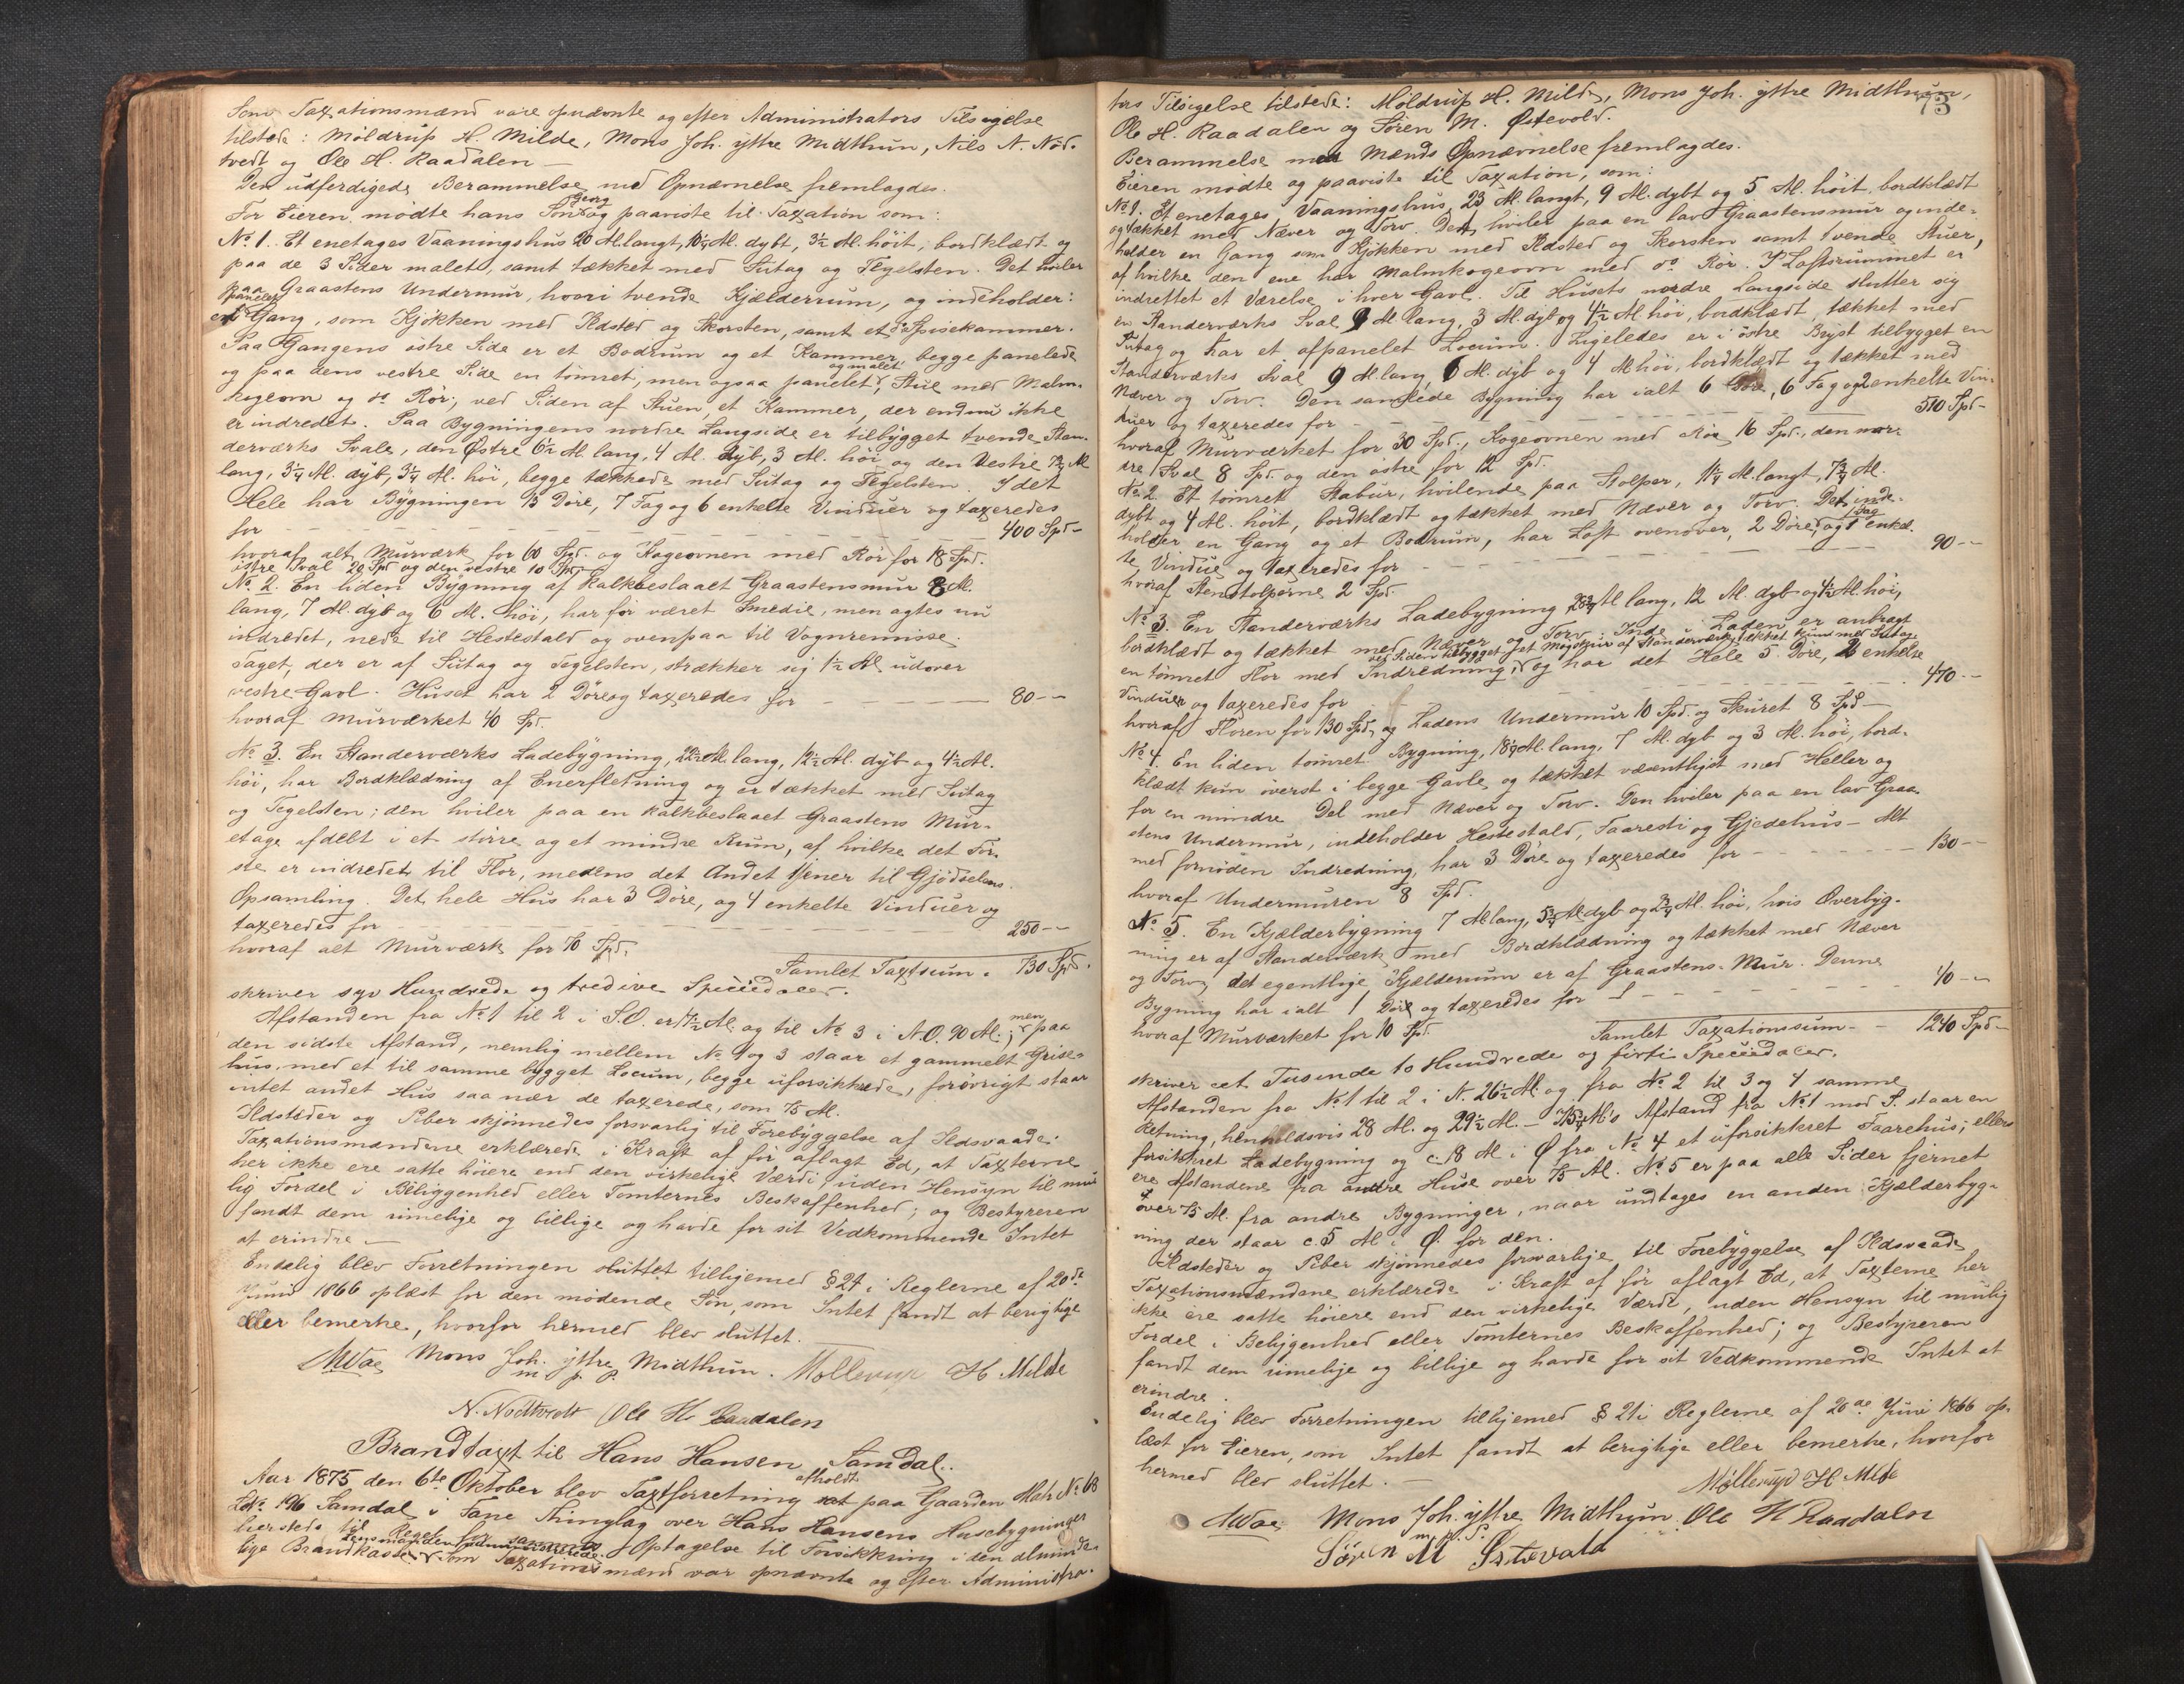 Som Taxationsmænd vare opnævnte og efter Administrators Tilsigelse
tilstede: Møldrup H. Milde, Mons Joh. yttre Midthun, Nils N. Nød-
tvedt og Ole H. Raadalen —
Den udferdigede Berammelse med Opnævnelse fremlagdes.
For Eieren mødte hans Søn Georg og paaviste til Taxation som:
No 1. Et enetages Vaaningshus 20 Al. langt, 10¼ Al. dybt, 3½ Al. høit, bordklædt og
paa de 3 Sider malet, samt tækket med Sutag og Tegelsten. Det hviler
paa Graastens Undermur, hvori tvende Kjælderrum, og indeholder:
en panelet Gang, som Kjøkken med Ildsted og Skorsten, samt et do Spisekammer.
Paa Gangens østre Side er et Bodrum og et Kammer, begge panelede
og paa dens vestre Side en tømret, men ogsaa panelet og malet, Stue med Malm-
kogeovn og do Rør; ved Siden af Stuen et Kammer, der endnu ikke
er indredet. Paa Bygningens nordre Langside er tilbygget tvende Stan-
derværks Svale, den Østre 6½ Al. lang, 4 Al. dyb, 3 Al. høi og den Vestre 7¾ Al.
lang, 3¼ Al. dyb, 3¼ Al. høi, begge tækkede med Sutag og Tegelsten. I det
Hele har Bygningen 13 Døre, 7 Fag og 6 enkelte Vinduer og taxeredes
for — 400 Spd —
hvoraf alt Murværk for 60 Spd. og Kogeovnen med Rør for 18 Spd.
østre Sval 20 Spd og den vestre 10 Spd.
No 2. En liden Bygning af kalkbeslaaet Graastensmur 8 Al.
lang, 7 Al. dyb og 6 Al. høi, har før været Smedie, men agtes nu
indredet, nede til Hestestald og ovenpaa til Vognremisse.
Taget, der er af Sutag og Tegelsten, strækker sig 1½ Al. udover
vestre Gavl. Huset har 2 Døre og taxeredes for — 80 — —
hvoraf Murværket 40 Spd.
No 3. En Standerværks Ladebygning, 22½ Al. lang, 12½ Al. dyb og 4½ Al.
høi, har Bordklædning af Enerfletning og er tækket med Sutag
og Tegelsten; den hviler paa en kalkbeslaaet Graastens Mur-
etage afdelt i et større og et mindre Rum, af hvilke det Før-
ste er indredet til Flor, medens det Andet tjener til Gjødselens
Opsamling. Det hele Hus har 3 Døre, og 4 enkelte Vinduer og
taxeredes for — 250 — —
hvoraf alt Murværk for 70 Spd.
Samlet Taxtsum . 730 Spd.
skriver syv Hundrede og tredive Speciedaler.
Afstanden fra No 1 til 2 i S.O. er 17½ Al. og til No 3 i N.O. 90 Al.; men paa
den sidste Afstand, nemlig mellem No 1 og 3 staar et gammelt Grise-
hus, med et til samme bygget Locum, begge uforsikkrede, forøvrigt staar
intet andet Hus saa nær de taxerede, som 75 Al.
Ildsteder og Piber skjønnedes forsvarlig til Forebyggelse af Ildsvaade.
Taxationsmændene erklærede i Kraft af før aflagt Ed, at Taxterne
her ikke ere satte høiere end den virkelige Værdi, uden Hensyn til mu-
lig Fordel i Beliggenhed eller Tomternes Beskaffenhed; og Bestyreren
fandt dem rimelige og billige og havde for sit Vedkommende Intet
at erindre —
Endelig blev Forretningen sluttet tilhjemed § 24 i Reglerne af 20de
Juni 1866 oplæst for den mødende Søn, som Intet fandt at berigtige
eller bemerke, hvorfor hermed blev sluttet.
Mons Joh. yttre Midthun. Møllerup H Milde
m. p. P.
N. Nødtvedt Ole H. Raadalen
Brandtaxt til Hans Hansen Samdal.
Aar 1875 den 6te Oktober blev Taxtforretning afholdt sat paa Gaarden Matr. No 68
LNo 196 Samdal i Fane Thinglag over Hans Hansens Husebygninger
hersteds til Optagelse til Forsikkring i den alminde-
lige Brandkasse. Som Taxationsmænd var opnævnte og efter Administra-
73
tors Tilsigelse tilstede: Møldrup H. Milde, Mons Joh. yttre Midthun,
Ole H. Raadalen og Søren M. Østevold.
Berammelse med Mænds Opnævnelse fremlagdes.
Eieren mødte og paaviste til Taxation, som:
No 1. Et enetages Vaaningshus, 23 Al. langt, 9 Al. dybt og 5 Al. høit, bordklædt
og tækket med Næver og Torv. Det hviler paa en lav Graastensmur og inde-
holder en Gang som Kjøkken med Ildsted og Skorsten samt tvende Stuer,
af hvilke den ene har Malmkogeovn med do Rør. I Loftsrummet er
indrettet et Værelse i hver Gavl. Til Husets nordre Langside slutter sig
en Standerværks Sval 9 Al. lang, 3 Al. dyb og 4½ Al. høi, bordklædt, tækket med
Sutag og har et afpanelet Locum. Ligeledes er i østre Bryst tilbygget en
Standerværks Sval 9 Al. lang, 6 Al. dyb og 4 Al. høi, bordklædt og tækket med
Næver og Torv. Den samlede Bygning har ialt 6 Døre, 6 Fag og 2 enkelte Vin-
duer og taxeredes for — 510 Spd —
hvoraf Murværket for 30 Spd., Kogeovnen med Rør 16 Spd., den nor-
dre Sval 8 Spd og den østre for 12 Spd.
No 2. Et tømret Stabur, hvilende paa Stolper, 11¼ Al. langt, 7¾ Al.
dybt og 4 Al. høit, bordklædt og tækket med Næver og Torv. Det inde-
holder en Gang og et Bodrum, har Loft ovenover, 2 Døre, 1 Fag og 1 enkel-
te Vindue og taxeredes for — 90 — —
hvoraf Stenstolperne 2 Spd.
No 3. En Standerværks Ladebygning, 28¾ Al. lang, 12 Al. dyb og 4½ Al. høi,
bordklædt og tækket med Næver og Torv. Inde i Laden er anbragt
en tømret Flor med Indredning, ved Siden tilbygget et Møgskjur af Standerværk, tækket kun med Sutag og har det Hele 5 Døre, 2 enkelte
Vinduer og taxeredes for — 470 — —
hvoraf Floren for 130 Spd, og Ladens Undermur 10 Spd. og Skuret 8 Spd —
No 4. En liden tømret Bygning, 18¼ Al. lang, 7 Al. dyb og 3 Al. høi, bord-
klædt kun øverst i begge Gavle og tækket væsentligst med Heller og
for en mindre Del med Næver og Torv. Den hviler paa en lav Graa-
stens Undermur, indeholder Hestestald, Faaresti og Gjedehus — Alt
med fornøden Indredning, har 3 Døre og taxeredes for — 130 — —
hvoraf Undermuren 8 Spd.
No 5. En Kjælderbygning 7 Al. lang, 5¾ Al. dyb og 2¾ Al. høi, hvis Overbyg-
ning er af Standerværk med Bordklædning og tækket med Næver
og Torv, det egentlige Kjælderrum er af Graastens-Mur. Denne
Bygning har ialt 1 Dør og taxeredes for — 40 — —
hvoraf Murværket for 10 Spd.
Samlet Taxationssum — 1240 Spd —
skriver eet Tusinde to Hundrede og firti Speciedaler.
Afstanden fra No 1 til 2 i N. 26½ Al. og fra No 2 til 3 og 4 samme
Retning, henholdsvis 28 Al. og 29½ Al. — 75¼ Al's Afstand fra No 1 mod S. staar en
forsikkret Ladebygning og c. 18 Al. i Ø fra No 4 et uforsikkret Faarehus; ellers
ere Afstandene fra andre Huse over 75 Al. No 5 er paa alle Sider fjernet
over 75 Al. fra andre Bygninger, naar undtages en anden Kjælderbyg-
ning der staar c. 5 Al. i Ø. for den.
Ildsteder og Piber skjønnedes forsvarlige til Forebyggelse af Ildsvaade
Taxationsmændene erklærede i Kraft af før aflagt Ed, at Taxterne her
ikke ere satte høiere end den virkelige Værdi, uden Hensyn til mulig
Fordel i Beliggenhed eller Tomternes Beskaffenhed; og Bestyreren
fandt dem rimelige og billige og havde for sit Vedkommende Intet at
erindre.
Endelig blev Forretningen tilhjemed § 21 i Reglerne af 20de Juni 1866 op-
læst for Eieren, som Intet fandt at berigtige eller bemerke, hvorfor
hermed blev sluttet. —
Møllerup H Milde
Mons Joh. yttre Midthun. Ole H Raadalen
m. p. P.
Søren M Østevold